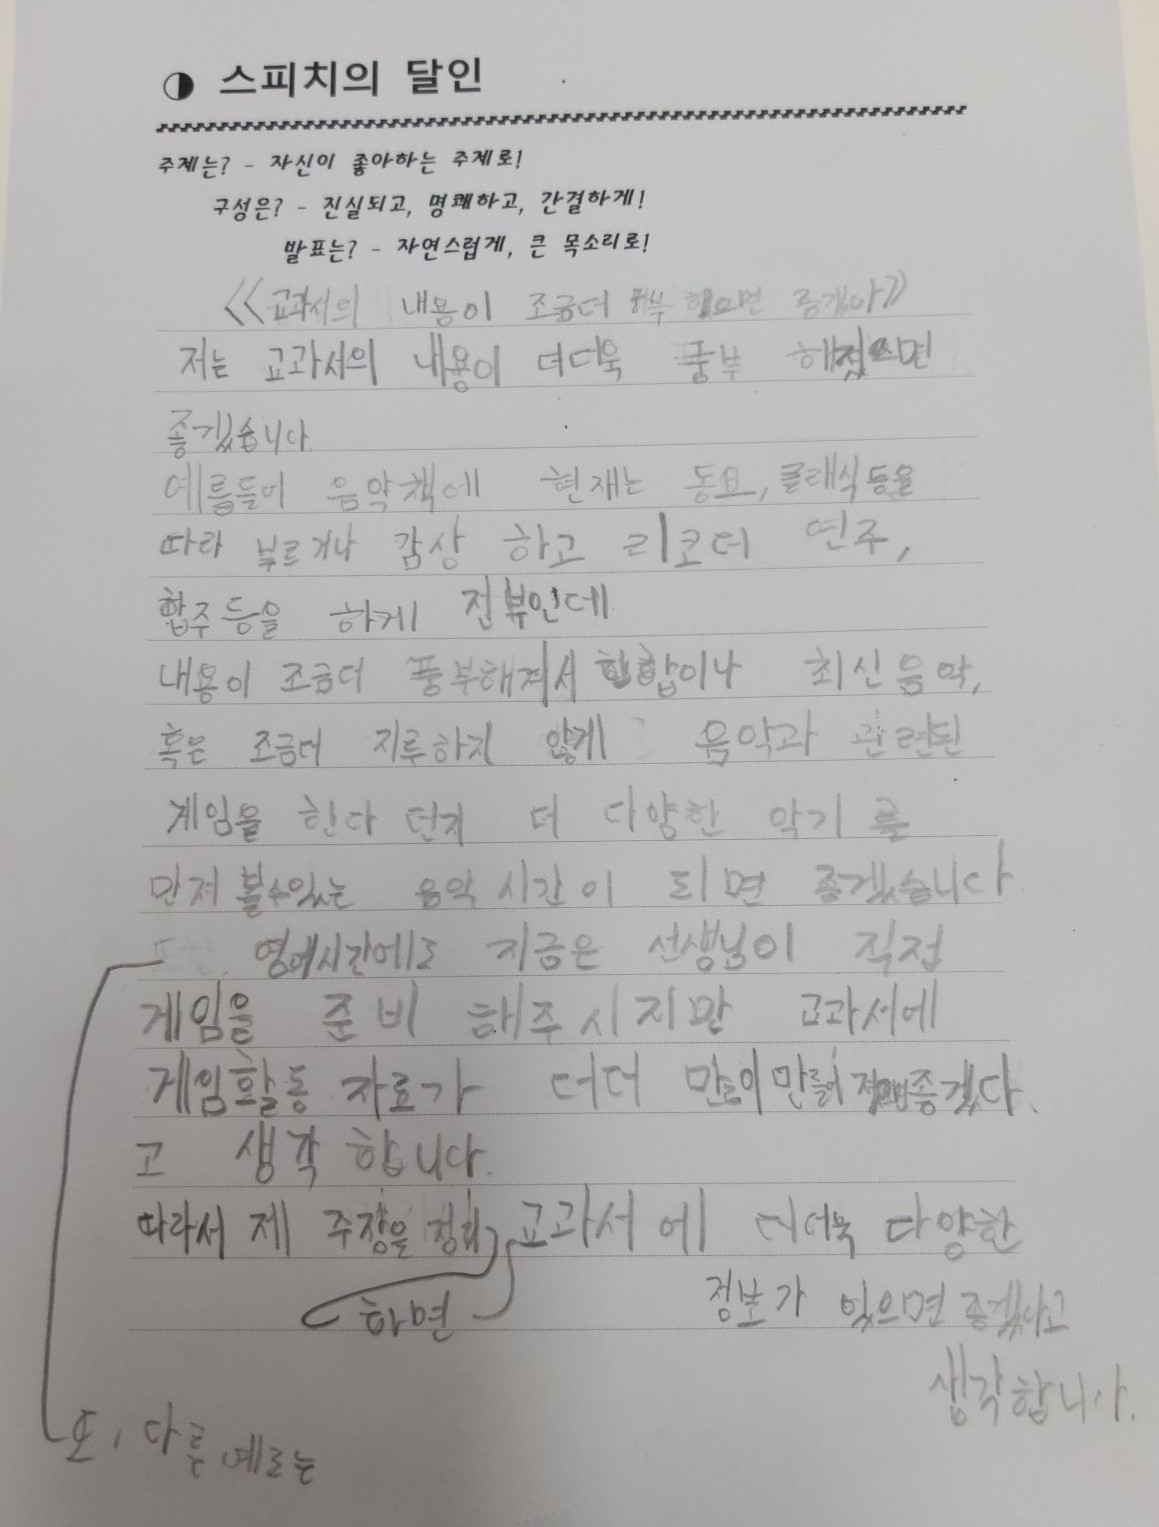 ◑ 스피치의 달인
주제는? - 자신이 좋아하는 주제로!
구성은? - 진실되고, 명쾌하고, 간결하게!
발표는? - 자연스럽게, 큰 목소리로!
《교과서의 내용이 조금더 풍부 했으면 좋겠어》
저는 교과서의 내용이 더더욱 풍부 해졌으면
좋겠습니다.
예를들어 음악책에 현재는 동요, 클래식 등을
따라 부르거나 감상 하고 리코더 연주,
합주 등을 하게 전부인데
내용이 조금더 풍부해져서 힙합이나 최신음악,
혹은 조금더 지루하지 않게 음악과 관련된
게임을 한다 던지 더 다양한 악기를
만져 볼수있는 음악 시간이 되면 좋겠습니다.
또, 다른 예로는
영어시간에도 지금은 선생님이 직접
게임을 준비 해주시지만 교과서에
게임활동 자료가 더더 많이 만들어 좋겠다
고 생각 합니다.
따라서 제 주장을 정리
하면
교과서에 더더욱 다양한
정보가 있으면 좋겠다고
생각합니다.